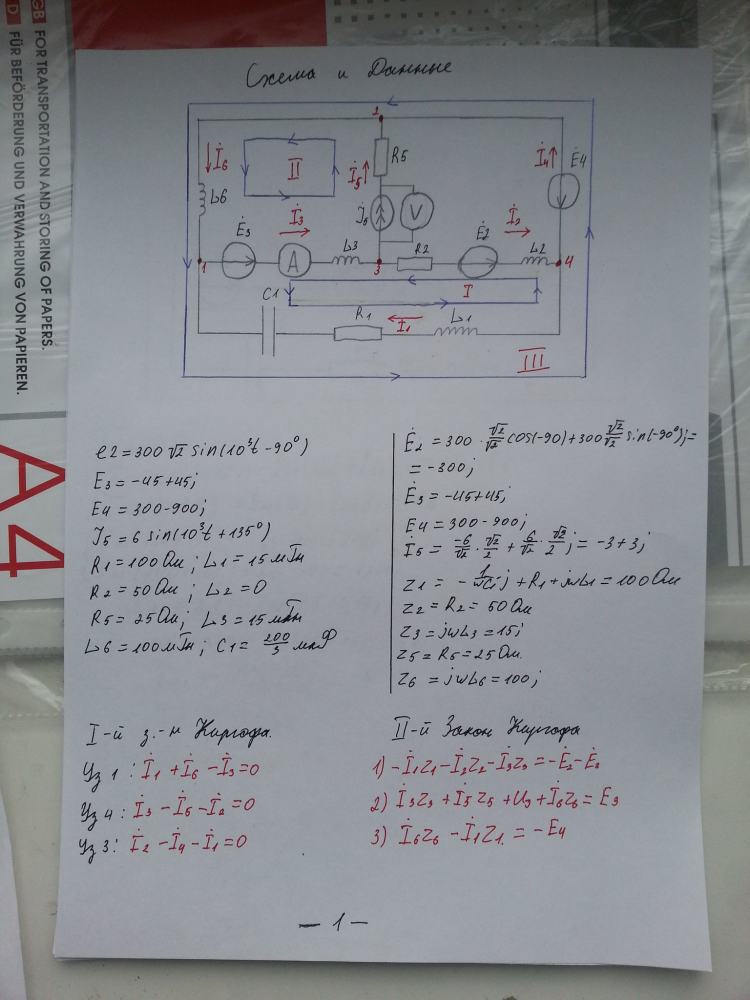 GB FOR TRANSPORTATION AND STORING OF PAPERS.
D FÜR BEFÖRDERUNG UND VERWAHRUNG VON PAPIEREN.
A4
Схема и Данные
2
İ6
II
İ5
R5
İ4
Ė4
L6
J5
V
Ė3
İ3
A
L3
R2
Ė2
İ2
L2
1
3
4
I
C1
R1
İ1
L1
III
e2 = 300 √2 sin(10³t - 90°)
E3 = -45 + 45j
E4 = 300 - 900j
J5 = 6 sin(10³t + 135°)
R1 = 100 Ом ; L1 = 15 мГн
R2 = 50 Ом ; L2 = 0
R5 = 25 Ом ; L3 = 15 мГн
L6 = 100 мГн ; C1 = 200/3 мкФ
Ė2 = 300 · √2/√2 cos(-90) + 300 √2/√2 sin(-90°)j =
= -300j
Ė3 = -45 + 45j
E4 = 300 - 900j
İ5 = -6/√2 · √2/2 + 6/√2 · √2/2 j = -3 + 3j
Z1 = - 1/ωC j + R1 + jωL1 = 100 Ом
Z2 = R2 = 50 Ом
Z3 = jωL3 = 15j
Z5 = R5 = 25 Ом.
Z6 = jωL6 = 100j
I-й з.-н Киргофа.
Уз 1 : İ1 + İ6 - İ3 = 0
Уз 4 : İ3 - İ5 - İ2 = 0
Уз 3 : İ2 - İ4 - İ1 = 0
II-й Закон Киргофа
1) -İ1Z1 - İ2Z2 - İ3Z3 = -Ė2 - Ė3
2) İ3Z3 + İ5Z5 + UJ + İ6Z6 = E3
3) İ6Z6 - İ1Z1. = -E4
— 1 —